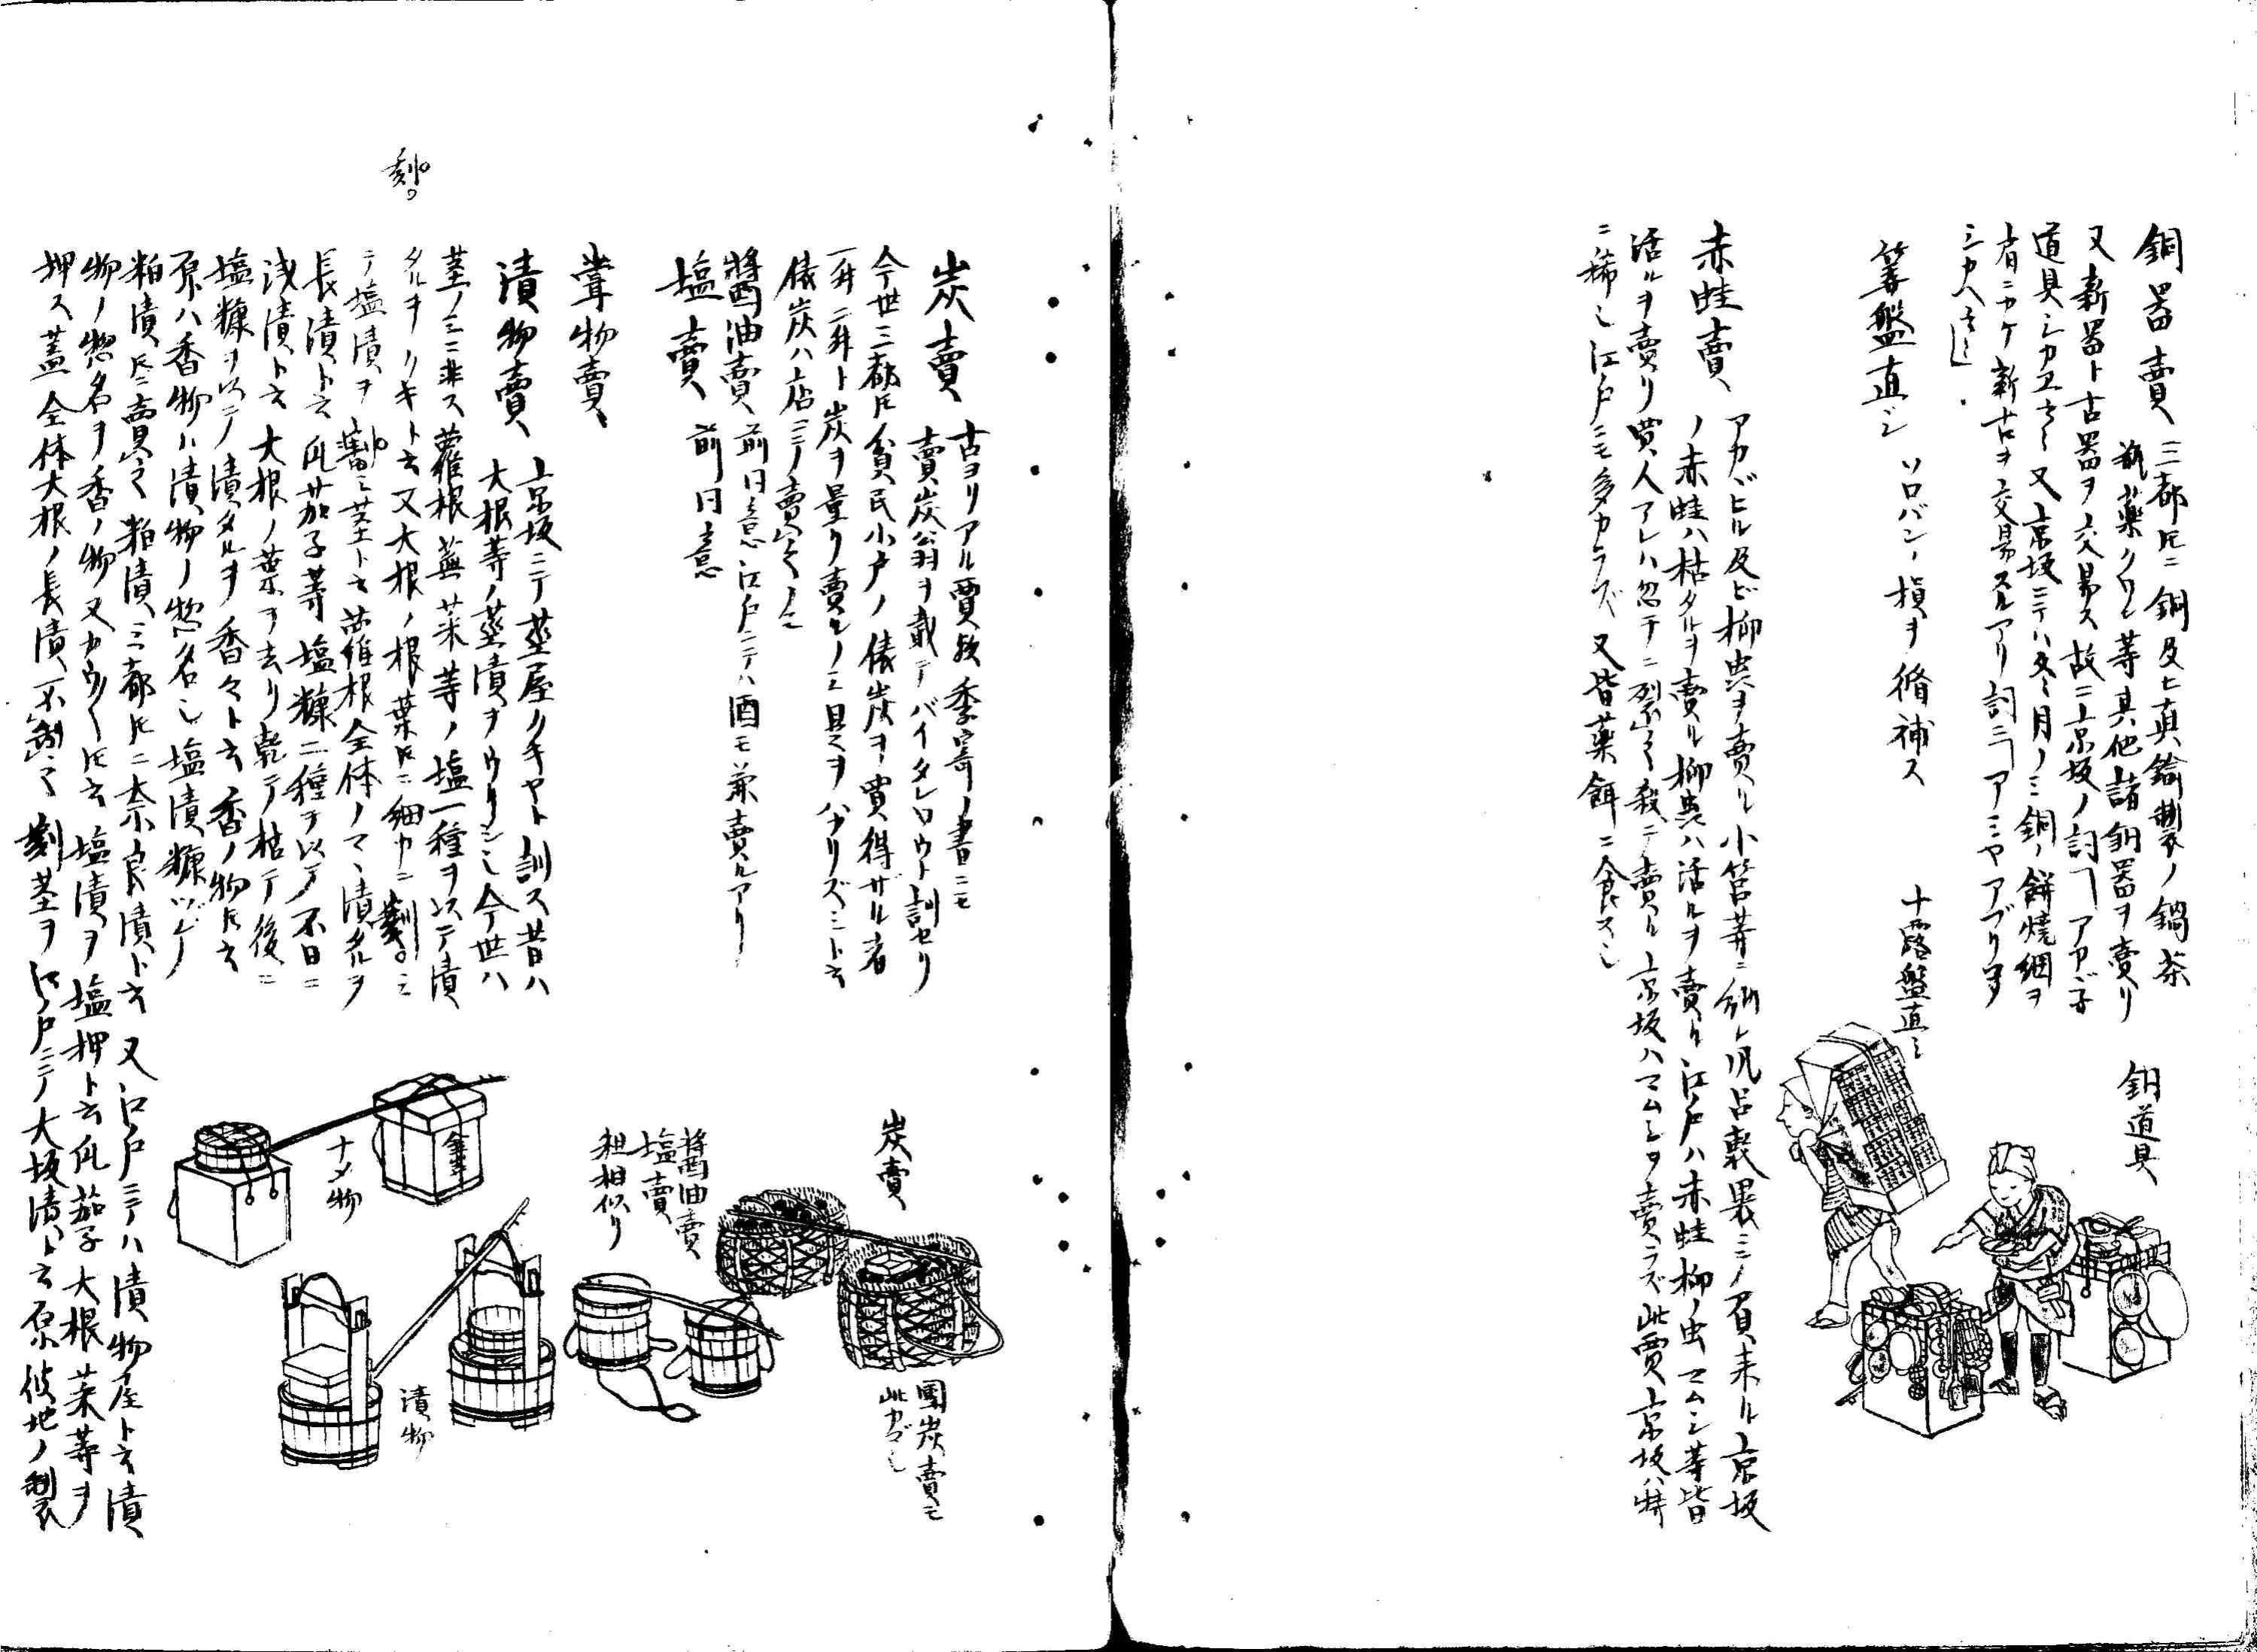 銅器賣 三都トモニ銅及ヒ真鍮製ノ鍋茶
瓶薬クワン等其他諸銅器ヲ賣リ
又新器ト古器ヲ交易ス故ニ京坂ノ詞ニアカガ子
道具シカヱ云々又京坂ニテハ冬月ノミ銅ノ餅焼網ヲ
肩ニカケ新古ヲ交易スルアリ詞ニアミヤアブリコ
シカヘ云々
銅道具
筭盤直シ ソロバンノ損ヲ脩補ス
十露盤直シ
赤蛙賣 アカガヒル及ビ柳虫ヲ賣ル小筥等ニ納レ風呂敷裹ミノ負来ル京坂
ノ赤蛙ハ枯タルヲ賣ル柳虫ハ活ルヲ賣リ江戸ハ赤蛙柳ノ虫マムシ等皆
活ルヲ賣リ買人アレハ忽チニ裂之殺テ賣ル京坂ハマムシヲ賣ラズ此賈京坂ハ特
ニ稀也江戸ニモ多カラズ又皆薬餌ニ食ス也
炭賣 古ヨリアル賈歟季寄ノ書ニモ
賣炭翁ヲ載テバイタンロウト訓セリ
今世三都トモ貧民小戸ノ俵炭ヲ買得ザル者
一升二升ト炭ヲ量リ賣ルノミ是ヲハカリズミト云
俵炭ハ店ニテ賣之ノミ
醬油賣 前同意江戸ニテハ酒モ兼賣ルアリ
塩賣 前同意
甞物賣
漬物賣 京坂ニテ茎屋クキヤト訓ス昔ハ
大根等ノ茎漬ヲウリシ也今世ハ
茎ノミニ非ス蘿根蕪菜等ノ塩一種ヲ以テ漬
タルヲクキト云又大根ノ根葉トモニ細カニ刻ミ
刻
テ塩漬ヲ刻ミ茎ト云蘿根全体ノマヽ漬タルヲ
長漬ト云瓜茄子等塩糠二種ヲ以テ不日ニ
浅漬ト云大根ノ葉ヲ去リ乾テ枯テ後ニ
塩糠ヲ以テ漬タルヲ香々ト云香ノ物トモ云
原ハ香物ハ漬物ノ惣名也塩漬糠ヅケ
粕漬トモニ賣之粕漬三都トモニ奈良漬ト云又江戸ニテハ漬物屋ト云漬
物ノ惣名ヲ香ノ物又カウカウトモ云塩漬ヲ塩押ト云瓜茄子大根菜等ヲ
押ス蓋全体大根ノ長漬不製之刻茎ヲ江戸ニテ大坂漬ト云原彼地ノ製
炭賣
團炭賣モ
此カゴ也
醬油賣
塩賣
粗相似リ
ナメ物
漬物